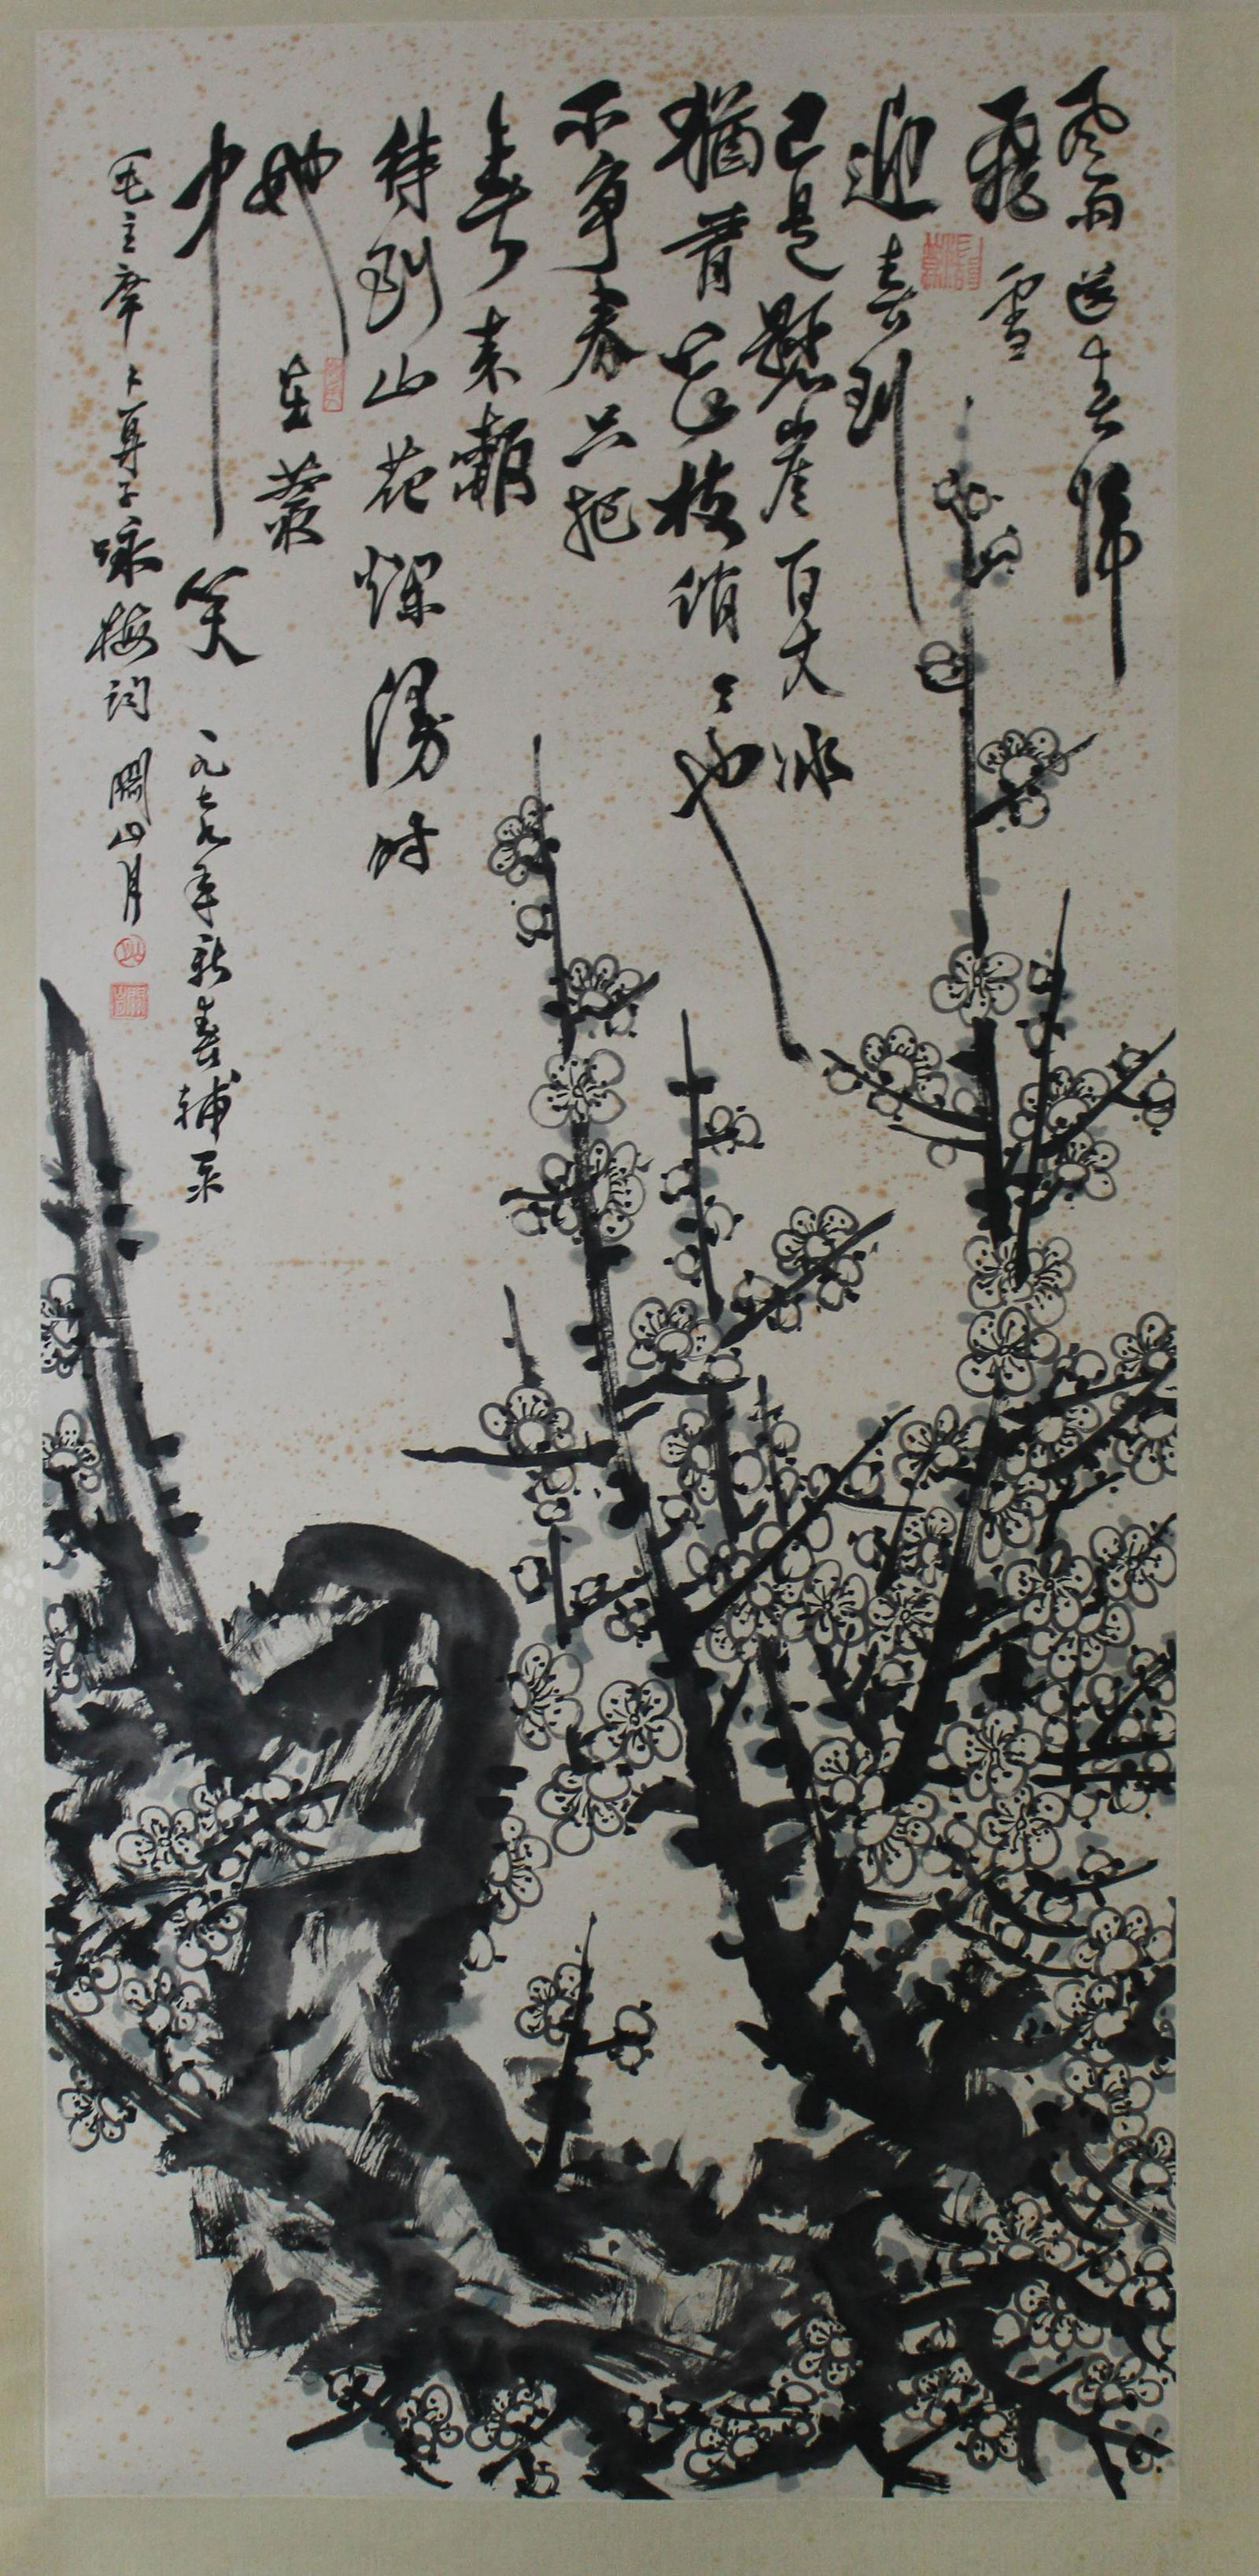 风雨送春归
飛雪
迎春到
已是懸崖百丈冰
猶有花枝俏々也
不争春只把
春来報
待到山花爛漫时
她在叢
中笑 一九七九年新春補录
毛主席卜算子咏梅词 關山月